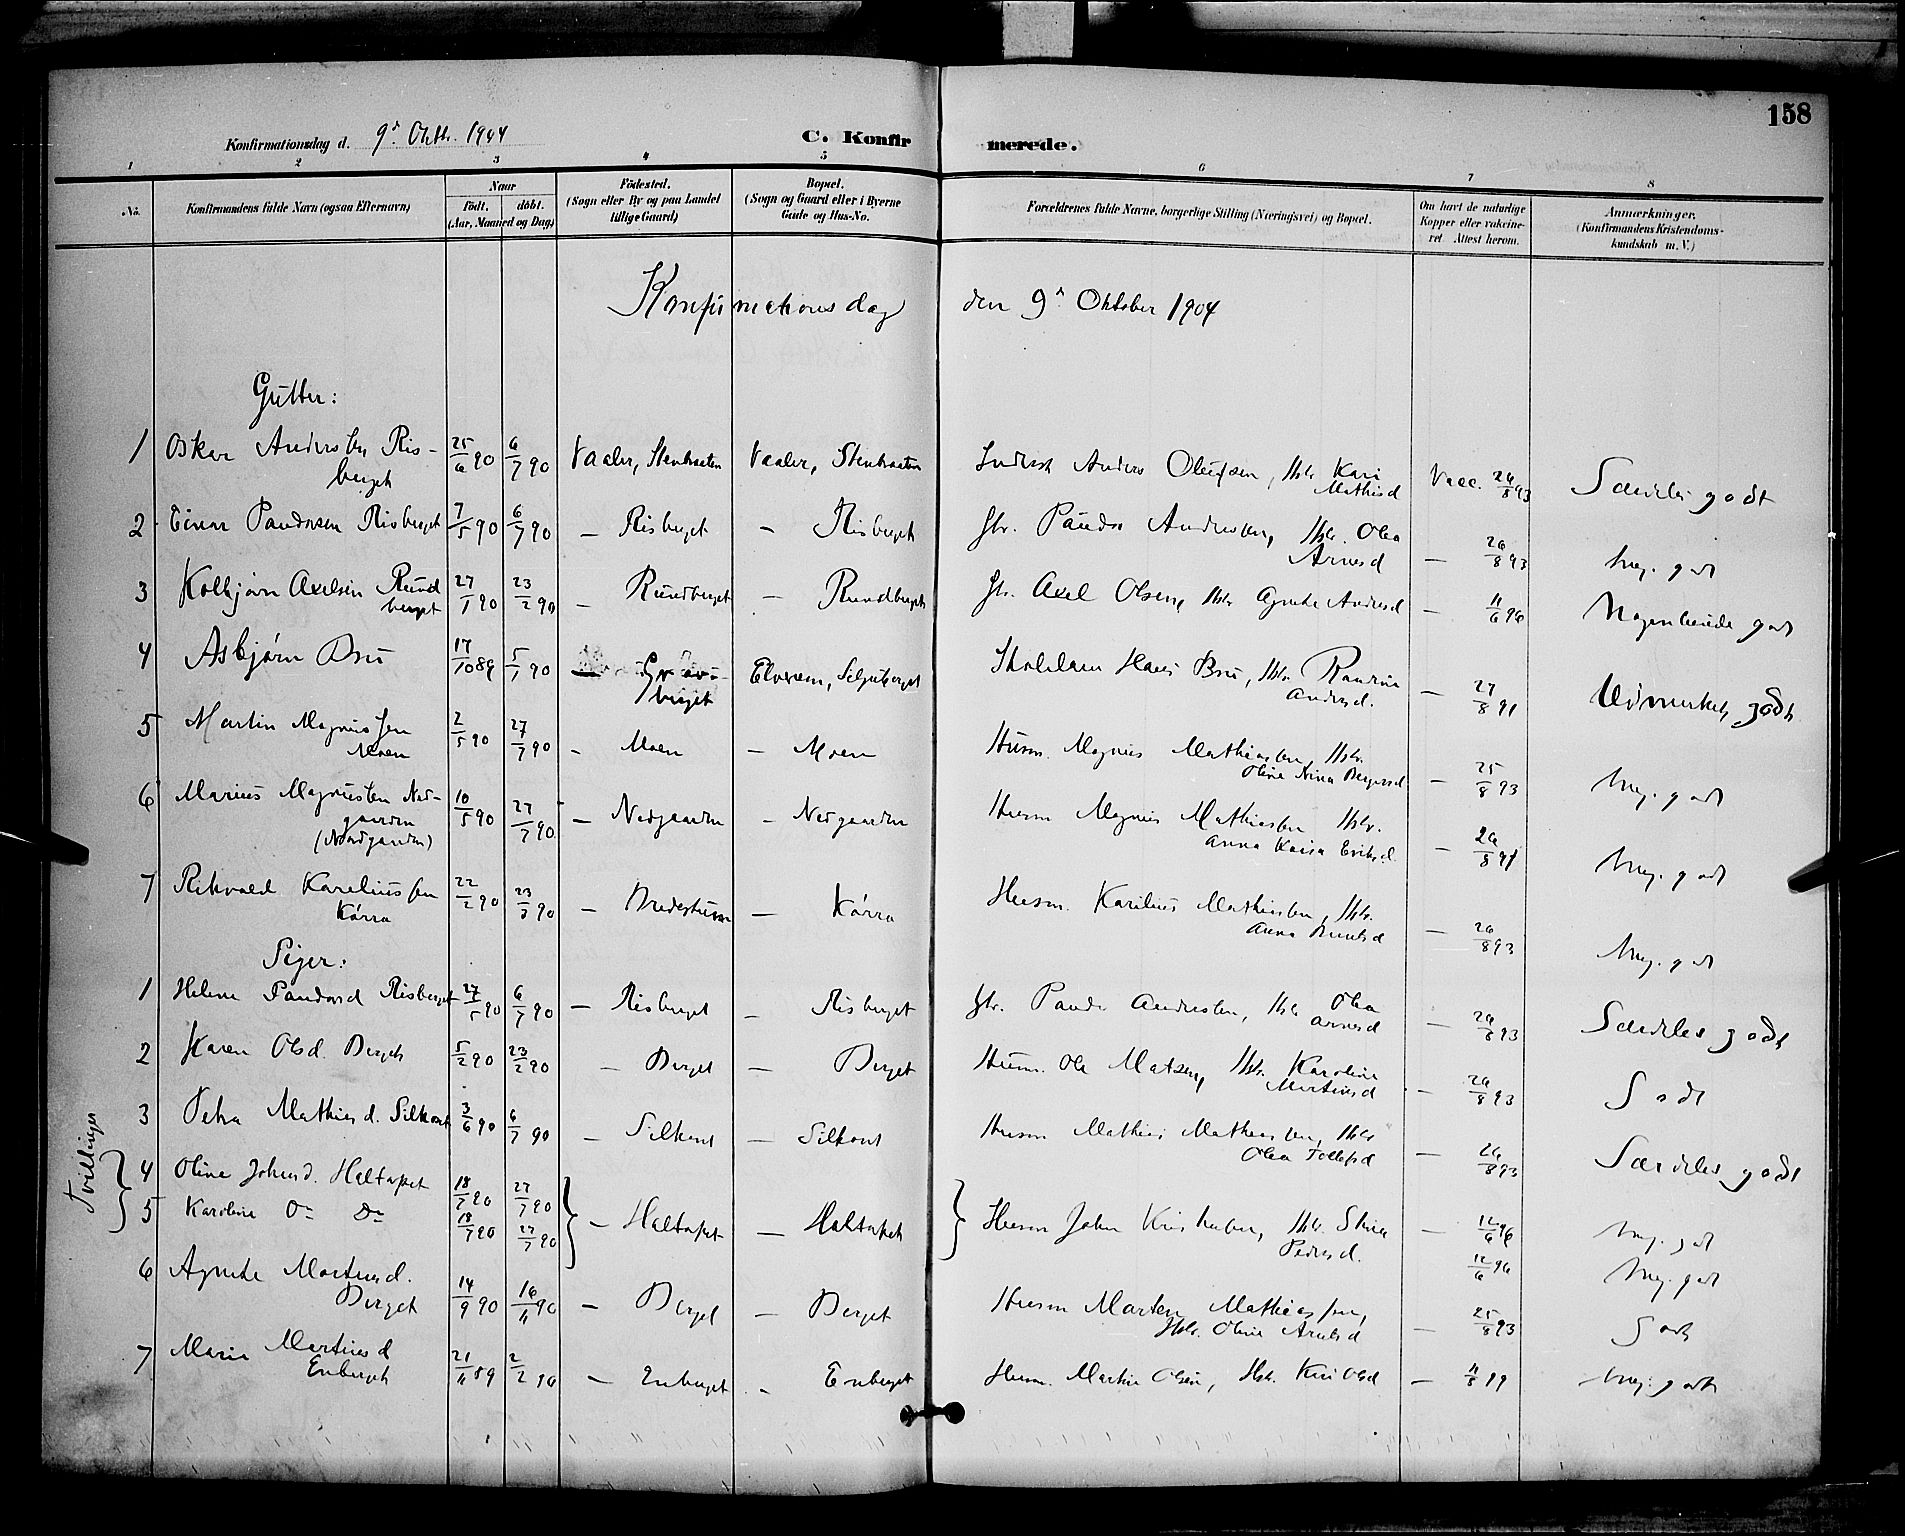 158
Konfirmationsdag d. 9de Oktbr. 1904
C. Konfirmerede.
1 2 3 4 5 6 7 8
No.
Konfirmandens fulde Navn (ogsaa Efternavn)
Naar
födt. döbt.
(Aar, Maaned og Dag)
Födested.
(Sogn eller By og paa Landet
tillige Gaard)
Bopæl.
(Sogn og Gaard eller i Byerne
Gade og Hus-No.
Forældrenes fulde Navne, borgerlige Stilling (Næringsvei) og Bopæl.
Om havt de naturlige
Kopper eller vakcine-
ret. Attest herom.
Anmærkninger.
(Konfirmandens Kristendoms-
kundskab m. V.)
Konfirmationsdag den 9de Oktober 1904
Gutter:
1 Oskar Andersen Risberget 25/6 90 6/7 90 Vaaler, Stenbraaten Vaaler, Stenbraaten Anders Olufsen, Hstr. Kari Mathisd Vacc. 26/8 93 Særdeles godt
2 Einar Paudersen Risberget 7/5 90 6/7 90 – Risberget – Risberget Gbr. Pauder Andersen, Hstr. Olea Arnesd – 26/8 93 Meg. godt
3 Kolbjørn Axelsen Rundberget 27/1 90 23/2 90 – Rundberget – Rundberget Gbr. Axel Olsen, Hstr Agnethe Andersd – 11/6 96 Nogenlunde godt
4 Asbjørn Bru 17/10 89 5/1 90 – Gravberget Elverum, Seljuberget Hans Bru, Hstr. Randine Andersd. – 27/8 91 Udmerket godt
5 Martin Magnussen Moen 2/5 90 27/7 90 – Moen – Moen Husm. Magnus Mathiassen, Hstr. Oline Nina Bergersd – 25/8 93 Meg. godt
6 Marius Magnussen Nedgaarden (Nordgaarden) 10/5 90 27/7 90 – Nedgaarden – Nedgaarden Husm Magnus Mathiassen Hstr. Anna Kaisa Eriksd. – 26/8 91 Meg. godt
7 Rikvald Kareliussen Kårra 22/2 90 23/3 90 – – Kårra Husm. Karelius Mathiassen, Hstr. Anna – 26/8 93 Meg. godt
Piger:
1 Helene Paudersd Risberget 27/5 90 6/7 90 – Risberget – Risberget Gbr. Pauder Andersen, Hstr Olea Arnesd – 26/8 93 Særdeles godt
2 Karen Olsd. Berget 5/2 90 23/2 90 – Berget – Berget Husm. Ole Matsen, Hstr. Karoline Martinsd – 26/8 93 Godt
3 Petra Mathiasd. Silkoset 3/6 90 6/7 90 – Silkoset – Silkoset Husm Mathias Mathiassen, Hstr Olea Tollefsd – 26/8 93 Særdeles godt
Tvillinger
4 Oline Johansd. Haltorpet 18/7 90 27/7 90
5 Karoline Do Do 18/7 90 27/7 90 – Haltorpet – Haltorpet Husm Johan Kristiansen, Hstr. Stina Pedersd. – 12/6 96 Meg. godt
12/6 96 Meg. godt
6 Agnethe Martensd. Berget 14/9 90 16/11 90 – Berget – Berget Husm Marten Mathiassen, Hstr. Oline Arnesd – 25/8 93 Godt
7 Marie Martinsd Enberget 21/11 89 2/2 90 – Enberget – Enberget Husm. Martin Olsen, Hstr. Kari Olsd – 11/8 99 Meg. godt